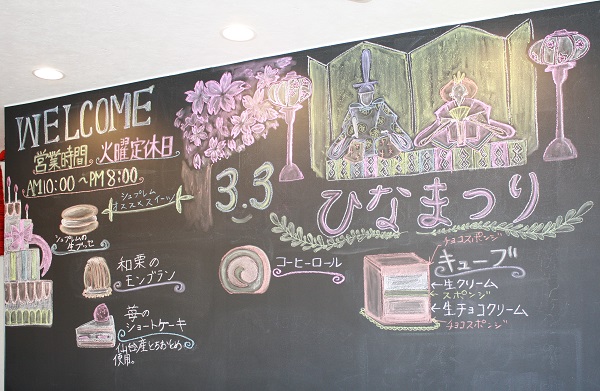 WELCOME
営業時間 火曜定休日
AM10:00〜PM8:00
シュプレム
オススメスイーツ
シュプレムの
生ブッセ
和栗の
モンブラン
苺の
ショートケーキ
仙台産とちおとめ
使用。
3.3
ひなまつり
コーヒーロール
チョコスポンジ
キューブ
←生クリーム
スポンジ
←生チョコクリーム
チョコスポンジ